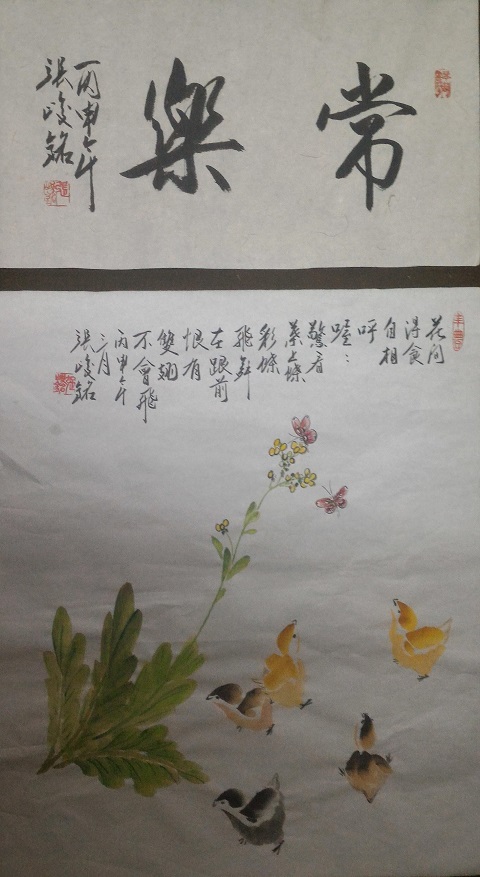 常樂
丙申年
張峻銘
花间
得食
自相
呼
喔:
驚看
蝶
彩蝶
飛舞
在跟前
恨有
雙翅
不會飛
丙申年
三月
張峻銘